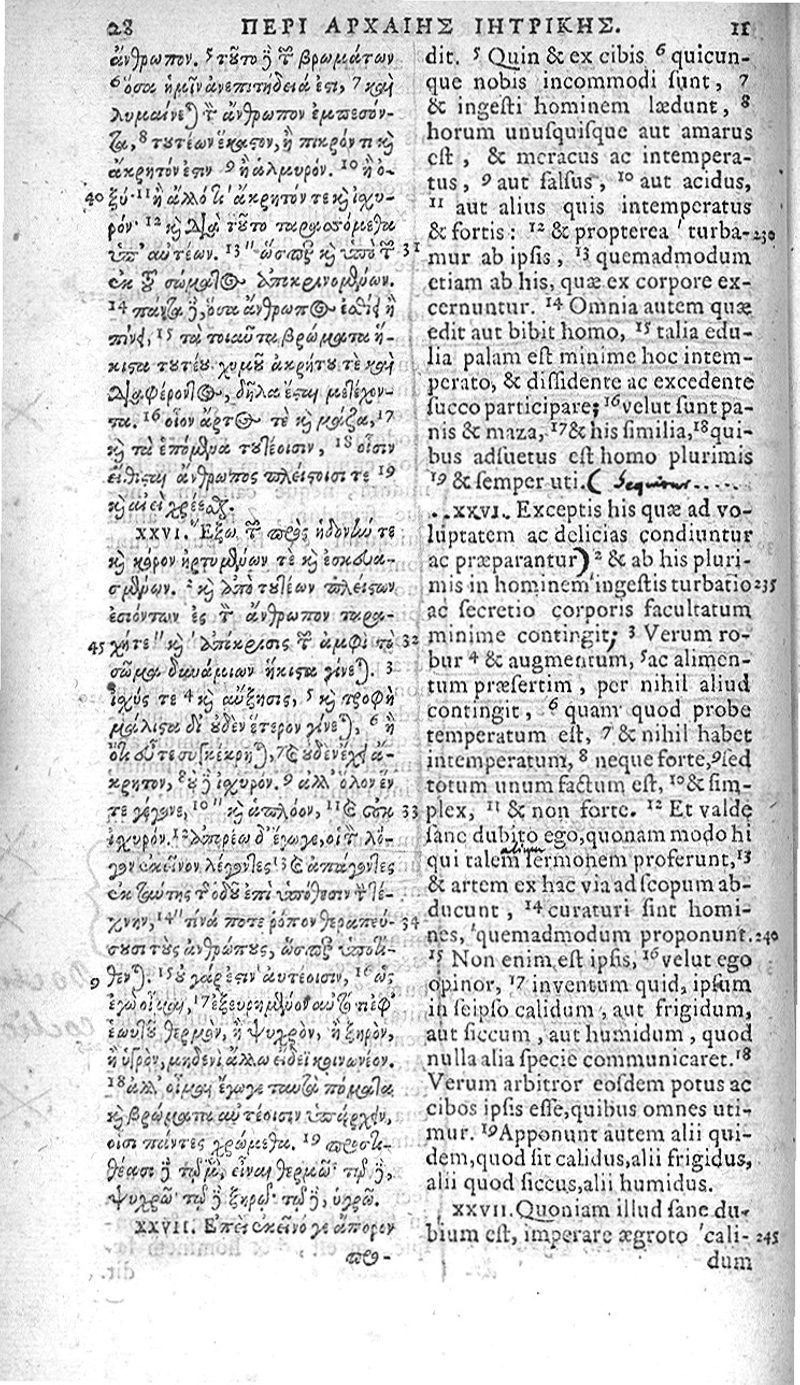 28 ΠΕΡΙ ΑΡΧΑΙΗΣ ΙΗΤΡΙΚΗΣ. II
ἄνθρωπον. 5 τοῦτο δὲ τῶν βρωμάτων
6 ὅσα ἡμῖν ἀνεπιτήδειά ἐστι, 7 καὶ
λυμαίνεται τὸν ἄνθρωπον ἐμπεσόν-
τα, 8 τουτέων ἕκαστον, ἢ πικρόν τι καὶ
ἄκρητόν ἐστιν 9 ἢ ἁλμυρόν. 10 ἢ ὀ-
40 ξύ· 11 ἢ ἄλλό τι ἄκρητόν τε καὶ ἰσχυ-
ρόν· 12 καὶ διὰ τοῦτο ταρασσόμεθα
ὑπ' αὐτέων. 13 ὥσπερ καὶ ὑπὸ τῶν 31
ἐκ τοῦ σώματος ἀποκρινομένων.
14 πάντα δὲ, ὅσα ἄνθρωπος ἐσθίει ἢ
πίνει, 15 τὰ τοιαῦτα βρώματα ἥ-
κιστα τουτέου χυμοῦ ἀκρήτου τὲ καὶ
διαφέροντος, δῆλά ἐστι μετέχον-
τα. 16 οἷον ἄρτος τὲ καὶ μάζα, 17
καὶ τὰ ἑπόμενα τουτέοισιν, 18 οἷσιν
εἴθισται ἄνθρωπος πλείστοισί τε 19
καὶ αἰεὶ χρέεσθαι.
XXVI. Ἔξω τῶν πρὸς ἡδονήν τε
καὶ κόρον ἠρτυμένων τε καὶ ἐσκευα-
σμένων. 2 καὶ ἀπὸ τουτέων πλείστων
ἐσιόντων ἐς τὸν ἄνθρωπον ταρα-
45 χή τε καὶ ἀπόκρισις τῶν ἀμφὶ τὸ 32
σῶμα δυνάμιων ἥκιστα γίνεται. 3
ἰσχύς τε 4 καὶ αὔξησις, 5 καὶ τροφὴ
μάλιστα δι' οὐδὲν ἕτερον γίνεται, 6 ἢ
ὅτι εὖ τε συγκέκρηται, 7 καὶ οὐδὲν ἔχει ἄ-
κρητον, 8 οὐδὲ ἰσχυρόν. 9 ἀλλ' ὅλον ἕν
τε γέγονε, 10 καὶ ἁπλόον, 11 καὶ οὐκ 33
ἰσχυρόν. 12 ἀπορέω δ' ἔγωγε, οἱ τὸν λό-
γον ἐκεῖνον λέγοντες 13 καὶ ἀπάγοντες
ἐκ ταύτης τῆς ὁδοῦ ἐπὶ ὑπόθεσιν τὴν τέ-
χνην, 14 τίνα ποτε τρόπον θεραπεύ- 34
σουσι τοὺς ἀνθρώπους, ὥσπερ ὑποτί-
9 θενται. 15 οὐ γάρ ἐστιν αὐτέοισιν, 16 ὡς
ἐγὼ οἶμαι, 17 ἐξευρημένον αὐτό τι ἐφ'
ἑωυτοῦ θερμὸν, ἢ ψυχρὸν, ἢ ξηρὸν,
ἢ ὑγρὸν, μηδενὶ ἄλλῳ εἴδει κοινωνέον.
18 ἀλλ' οἶμαι ἔγωγε ταυτὰ πόματα
καὶ βρώματα αὐτέοισιν ὑπάρχειν,
οἷσι πάντες χρώμεθα. 19 προστι-
θέασι δὲ τῷ μὲν, εἶναι θερμῷ· τῷ δὲ,
ψυχρῷ· τῷ δὲ ξηρῷ· τῷ δὲ, ὑγρῷ.
XXVII. Ἐπεὶ ἐκεῖνό γε ἄπορον
προ-
dit. 5 Quin & ex cibis 6 quicun-
que nobis incommodi sunt, 7
& ingesti hominem lædunt, 8
horum unusquisque aut amarus
est, & meracus ac intempera-
tus, 9 aut salsus, 10 aut acidus,
11 aut alius quis intemperatus
& fortis: 12 & propterea turba- 230
mur ab ipsis, 13 quemadmodum
etiam ab his, quæ ex corpore ex-
cernuntur. 14 Omnia autem quæ
edit aut bibit homo, 15 talia edu-
lia palam est minime hoc intem-
perato, & dissidente ac excedente
succo participare; 16 velut sunt pa-
nis & maza, 17 & his similia, 18 qui-
bus adsuetus est homo plurimis
19 & semper uti. ( Sequitur.....
..XXVI. Exceptis his quæ ad vo-
luptatem ac delicias condiuntur
ac præparantur) 2 & ab his pluri-
mis in hominem ingestis turbatio 235
ac secretio corporis facultatum
minime contingit; 3 Verum ro-
bur 4 & augmentum, 5 ac alimen-
tum præsertim, per nihil aliud
contingit, 6 quam quod probe
temperatum est, 7 & nihil habet
intemperatum, 8 neque forte, 9 sed
totum unum factum est, 10 & sim-
plex, 11 & non forte. 12 Et valde
sane dubito ego, quonam modo hi
alium
qui talem sermonem proferunt, 13
& artem ex hac via ad scopum ab-
ducunt, 14 curaturi sint homi-
nes, quemadmodum proponunt. 240
15 Non enim est ipsis, 16 velut ego
opinor, 17 inventum quid, ipsum
in seipso calidum, aut frigidum,
aut siccum, aut humidum, quod
nulla alia specie communicaret. 18
Verum arbitror eosdem potus ac
cibos ipsis esse, quibus omnes uti-
mur. 19 Apponunt autem alii qui-
dem, quod sit calidus, alii frigidus,
alii quod siccus, alii humidus.
XXVII. Quoniam illud sane du-
bium est, imperare ægroto cali- 245
dum